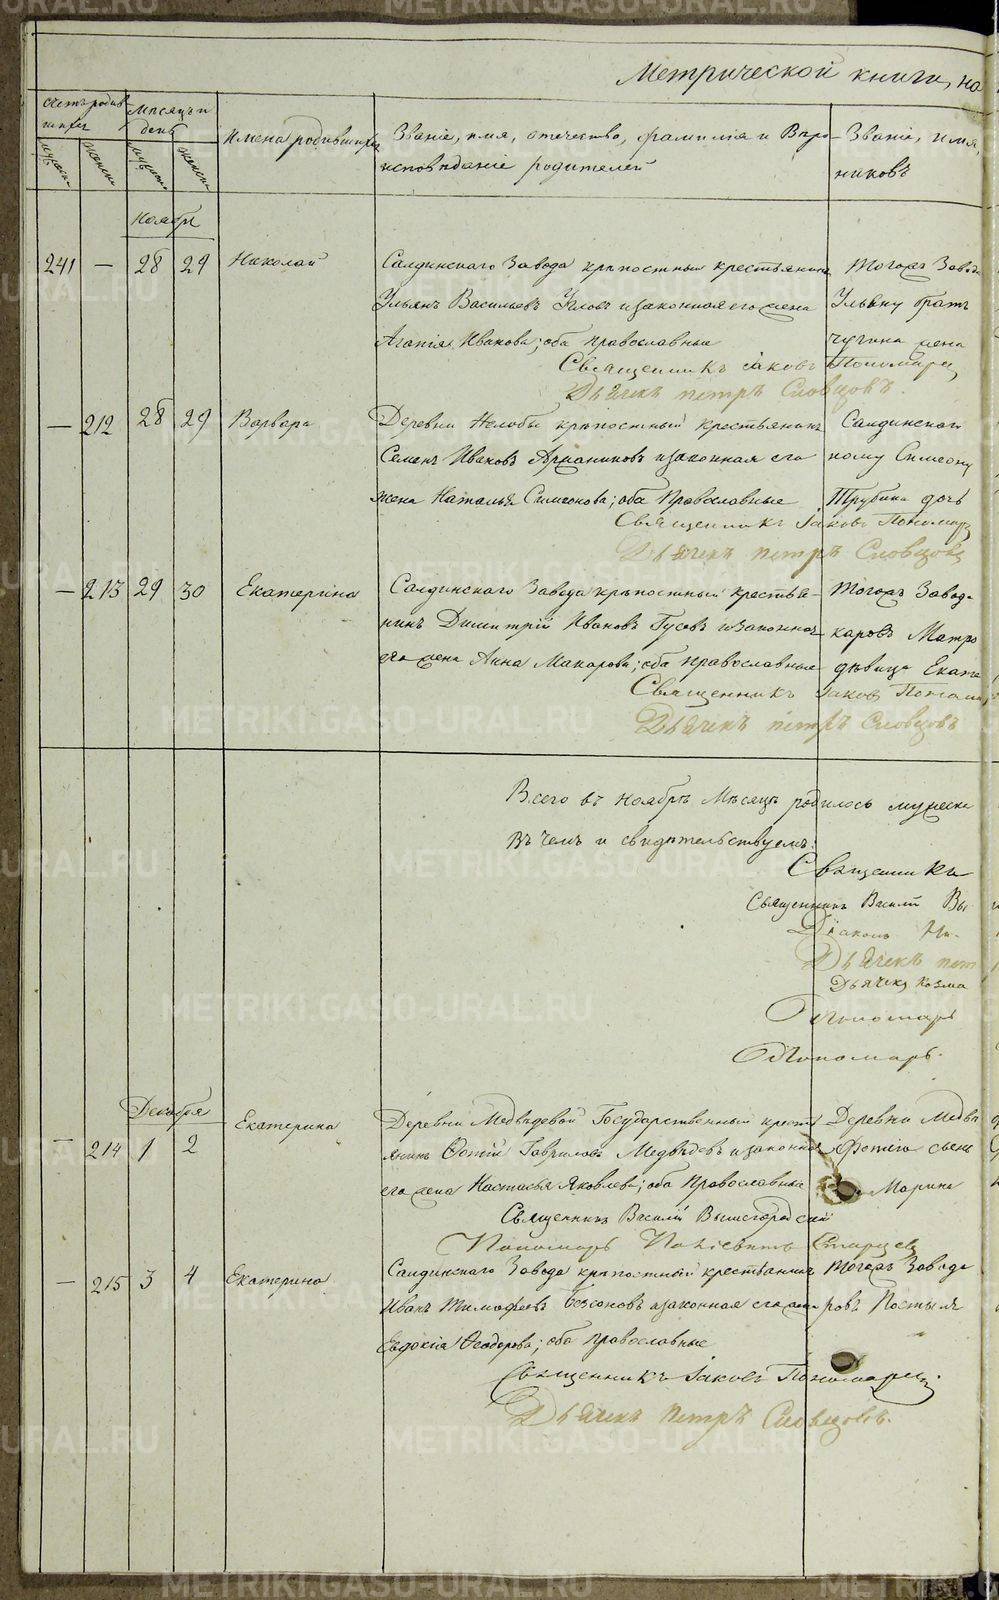 Метрической книги, на
Счетъ родив
шихся
Мѣсяцъ и
день
Имена родившихся
Званіе, имя, отечество, фамилія и Веро
исповѣданіе родителей
Званіе, имя,
никовъ
Ноябрь
241 — 28 29 Николай
Салдинскаго Завода крѣпостный крестьянинъ
Ульянъ Васильевъ и законная его жена
Агапія Иванова; оба православные
Тогожъ Заво
Ульяну братъ
жена
Священникъ Іаковъ Пономарев
Дьячекъ петръ Словцовъ.
— 212 28 29 Варвара
Деревни Нелобы крѣпостный крестьянинъ
Семенъ Ивановъ и законная его
жена Наталья Симеонова; оба Православные
Салдинскаго
ному Симеону
Трубина дочь
Священникъ Іаковъ Пономар
Дьячекъ петръ Словцовъ
— 213 29 30 Екатерина
Салдинскаго Завода крѣпостный крестья-
нинъ Димитрій Ивановъ Гусевъ и законная
его жена Анна Макарова; оба православные
Тогожъ Завод
каровъ Матро
дѣвица Екате
Священникъ Іаковъ Понома
Дьячекъ петръ Словцовъ
Всего въ Ноябрѣ Мѣсяцѣ родилось мужеска
Въ чемъ и свидѣтельствуемъ:
Священникъ
Священникъ Василій Вы
Діаконъ Ни
Дьячекъ пет
Дьячекъ Козма
Пономарь
Пономарь
Декабря
— 214 1 2 Екатерина
Деревни Медвѣдевой Государственный крест
янинъ Фотій Гавриловъ Медвѣдевъ и законная
его жена Настасья Яковлева; оба Православные
Деревни Медвѣ
Фотіа сынъ
Марина
Священникъ Василій Вышегородскій
Пономарь Старцевъ
— 215 3 4 Екатерина
Салдинскаго Завода крѣпостный крестьянинъ
Иванъ Тимофеевъ Безсоновъ и законная его жена
Евдокія Ѳеодорова; оба Православные
Тогожъ Завода
ровъ Постыл
Священникъ Іаковъ Пономаревъ.
Дьячекъ петръ Словцовъ.
METRIKI.GASO-URAL.RU